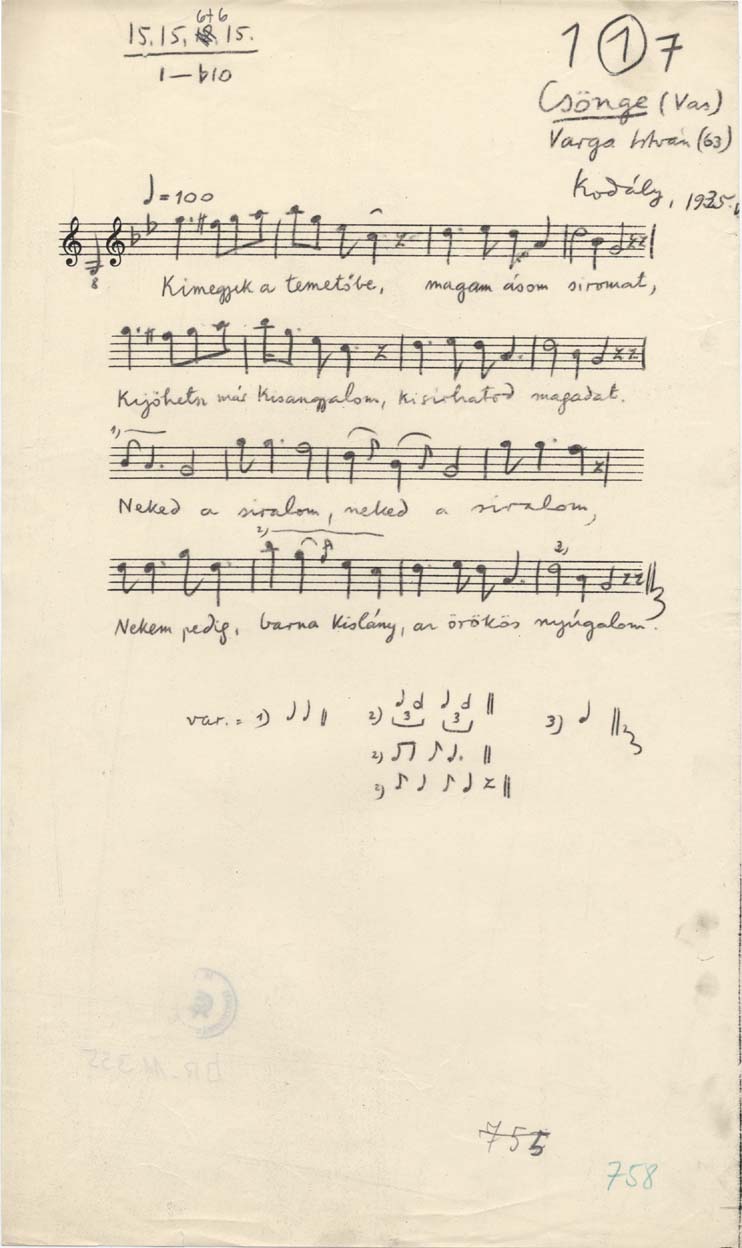 6+6
15, 15, 15.
1—b10
1 1 7
Csönge (Vas)
Varga István (63)
Kodály, 1935.
♩=100
8
Kimegyek a temetőbe, magam ásom siromat,
Kijöhetsz már kisangyalom, kisirhatod magadat.
1)
Neked a siralom, neked a siralom,
2) 3)
Nekem pedig, barna kislány, az örökös nyúgalom.
var. = 1) 2) 3 3 3)
2)
2)
BR. M 355
755
758